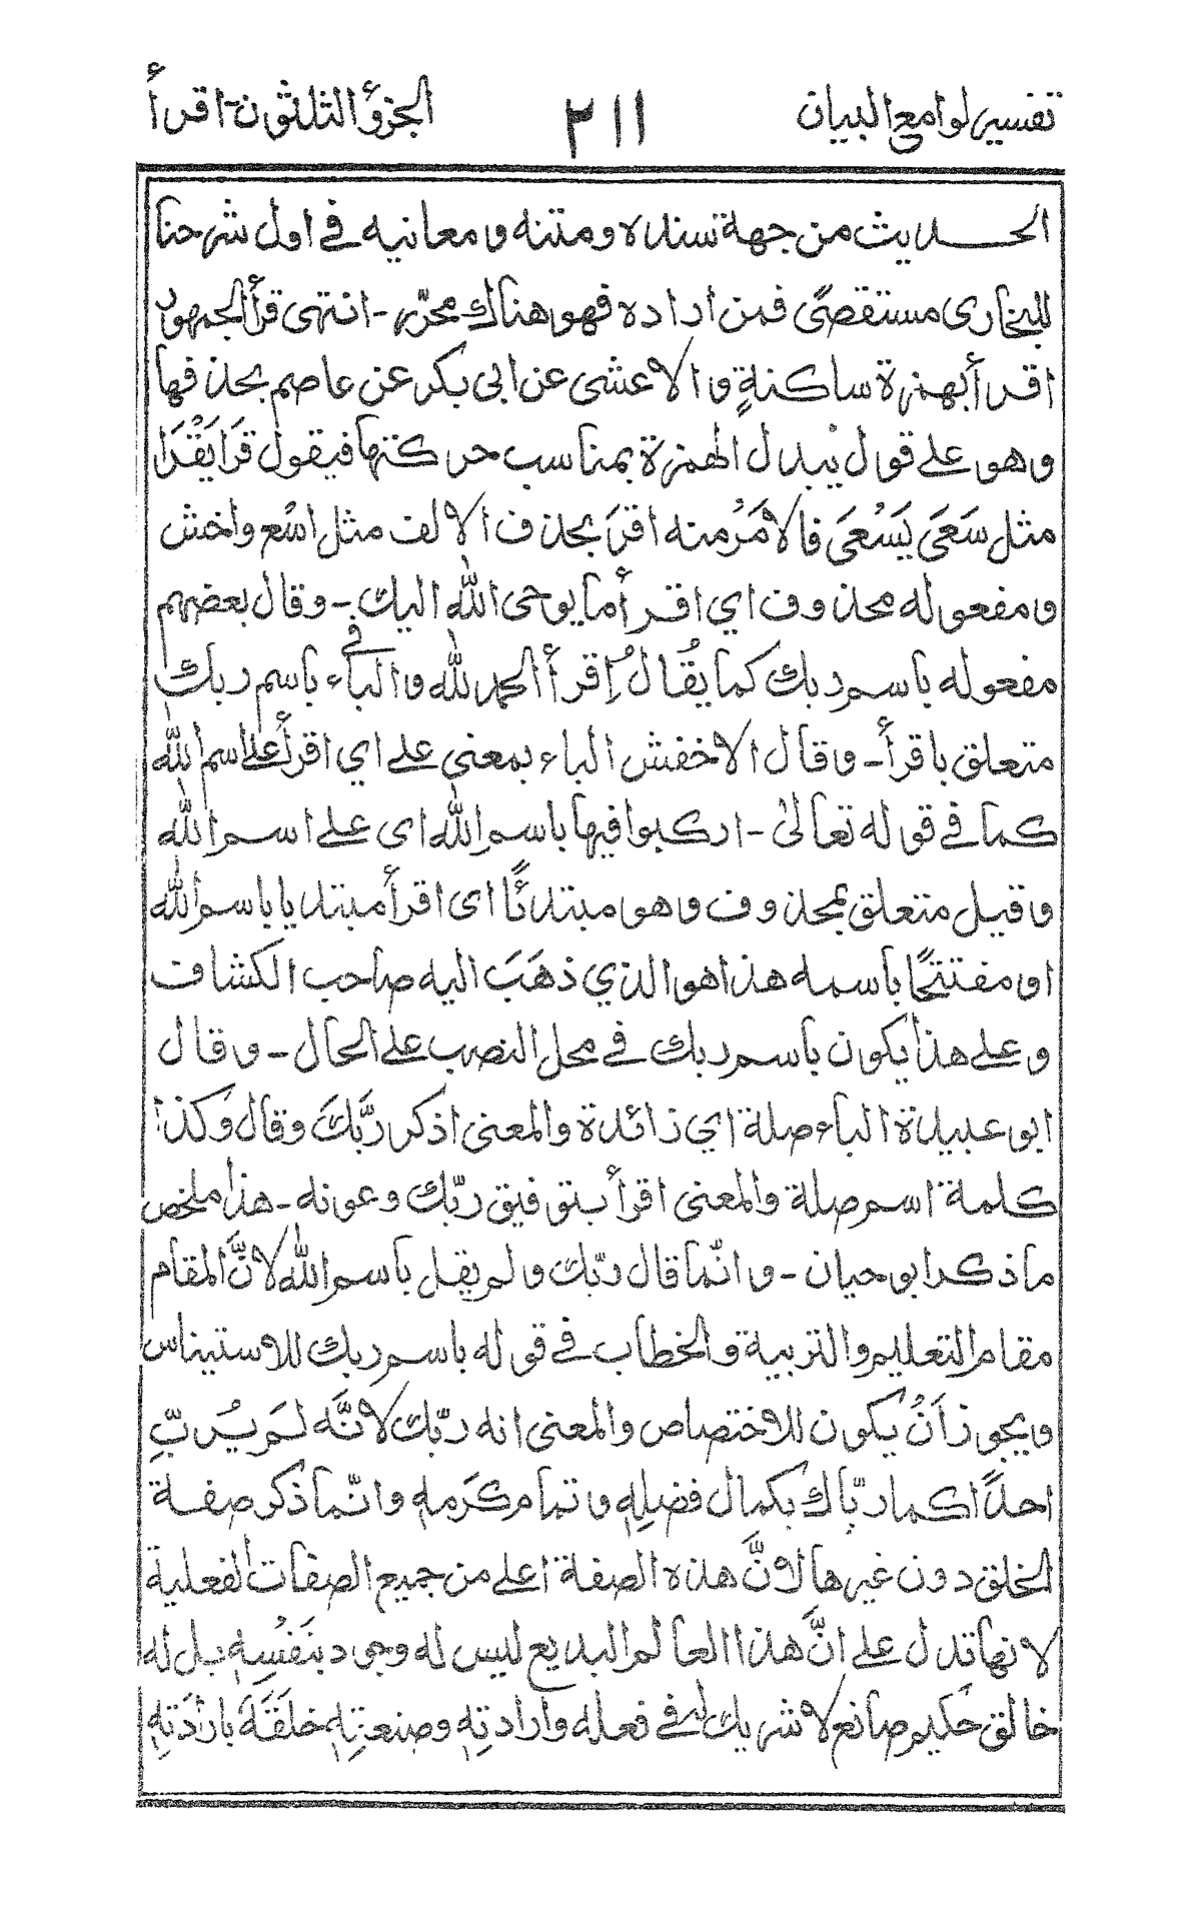 تفسير لوامع البيان ٣١١ الجزؤ الثلثون-اقرأ
الحديث من جهة سنده ومتنه ومعانيه في اول شرحنا
للبخارى مستقصًى فمن اراده فهو هناك محرّر- انتهى قرأ الجمهور
اقرأ بهمزة ساكنةٍ والاعشى عن ابى بكر عن عاصم بحذفها
وهو على قول يبدل الهمزة بمناسب حركتها فيقول قَرَا يَقْرَا
مثل سَعَى يَسْعَى فالامَرُ منه اقرَ بحذف الالف مثل اسْع واخش
ومفعوله محذوف اي اقرأ ما يوحى الله اليك- وقال بعضهم
مفعوله باسم ربك كما يُقال اِقرأ الحمد لله والباء في باسم ربك
متعلق باقرأ- وقال الاخفش الباء بمعنى على اي اقرأ على اسم الله
كما في قوله تعالىٰ- اركبوا فيها باسم الله اى على اسم الله
وقيل متعلق بمحذوف وهو مبتدئًا اى اقرأ مبتديا باسم الله
او مفتتحًا باسمه هذا هو الذي ذهَبَ اليه صاحب الكشاف
وعلى هذا يكون باسم ربك في محل النصب على الحال- وقال
ابو عبيدة الباء صلة اي زائدة والمعنى اذكر ربَّكَ وقال وكذا
كلمة اسم صلة والمعنى اقرأ بتوفيق ربّك وعونه- هذا ملخص
ما ذكر ابو حيان- وانّما قال ربّك ولم يقل باسم الله لانَّ المقام
مقام التعليم والتربية والخطاب في قوله باسم ربك للاستيناس
ويجوز اَنْ يكون للاختصاص والمعنى انه ربّك لانَّه لَم يُرَبِّ
احدًا كما ربّاك بكمال فضلِهٖ وتمام كَرمهٖ وانّما ذكر صفة
الخلق دون غيرها لانَّ هذه الصفة اعلى من جميع الصفات الفعلية
لانها تدل على انَّ هذا العالم البديع ليس له وجود بنَفْسِهٖ بل له
خالق حكيم صانع لا شريك له في فعله وارادتِهٖ وصنعتِهٖ خلَقَهٗ بارادَتِهٖ